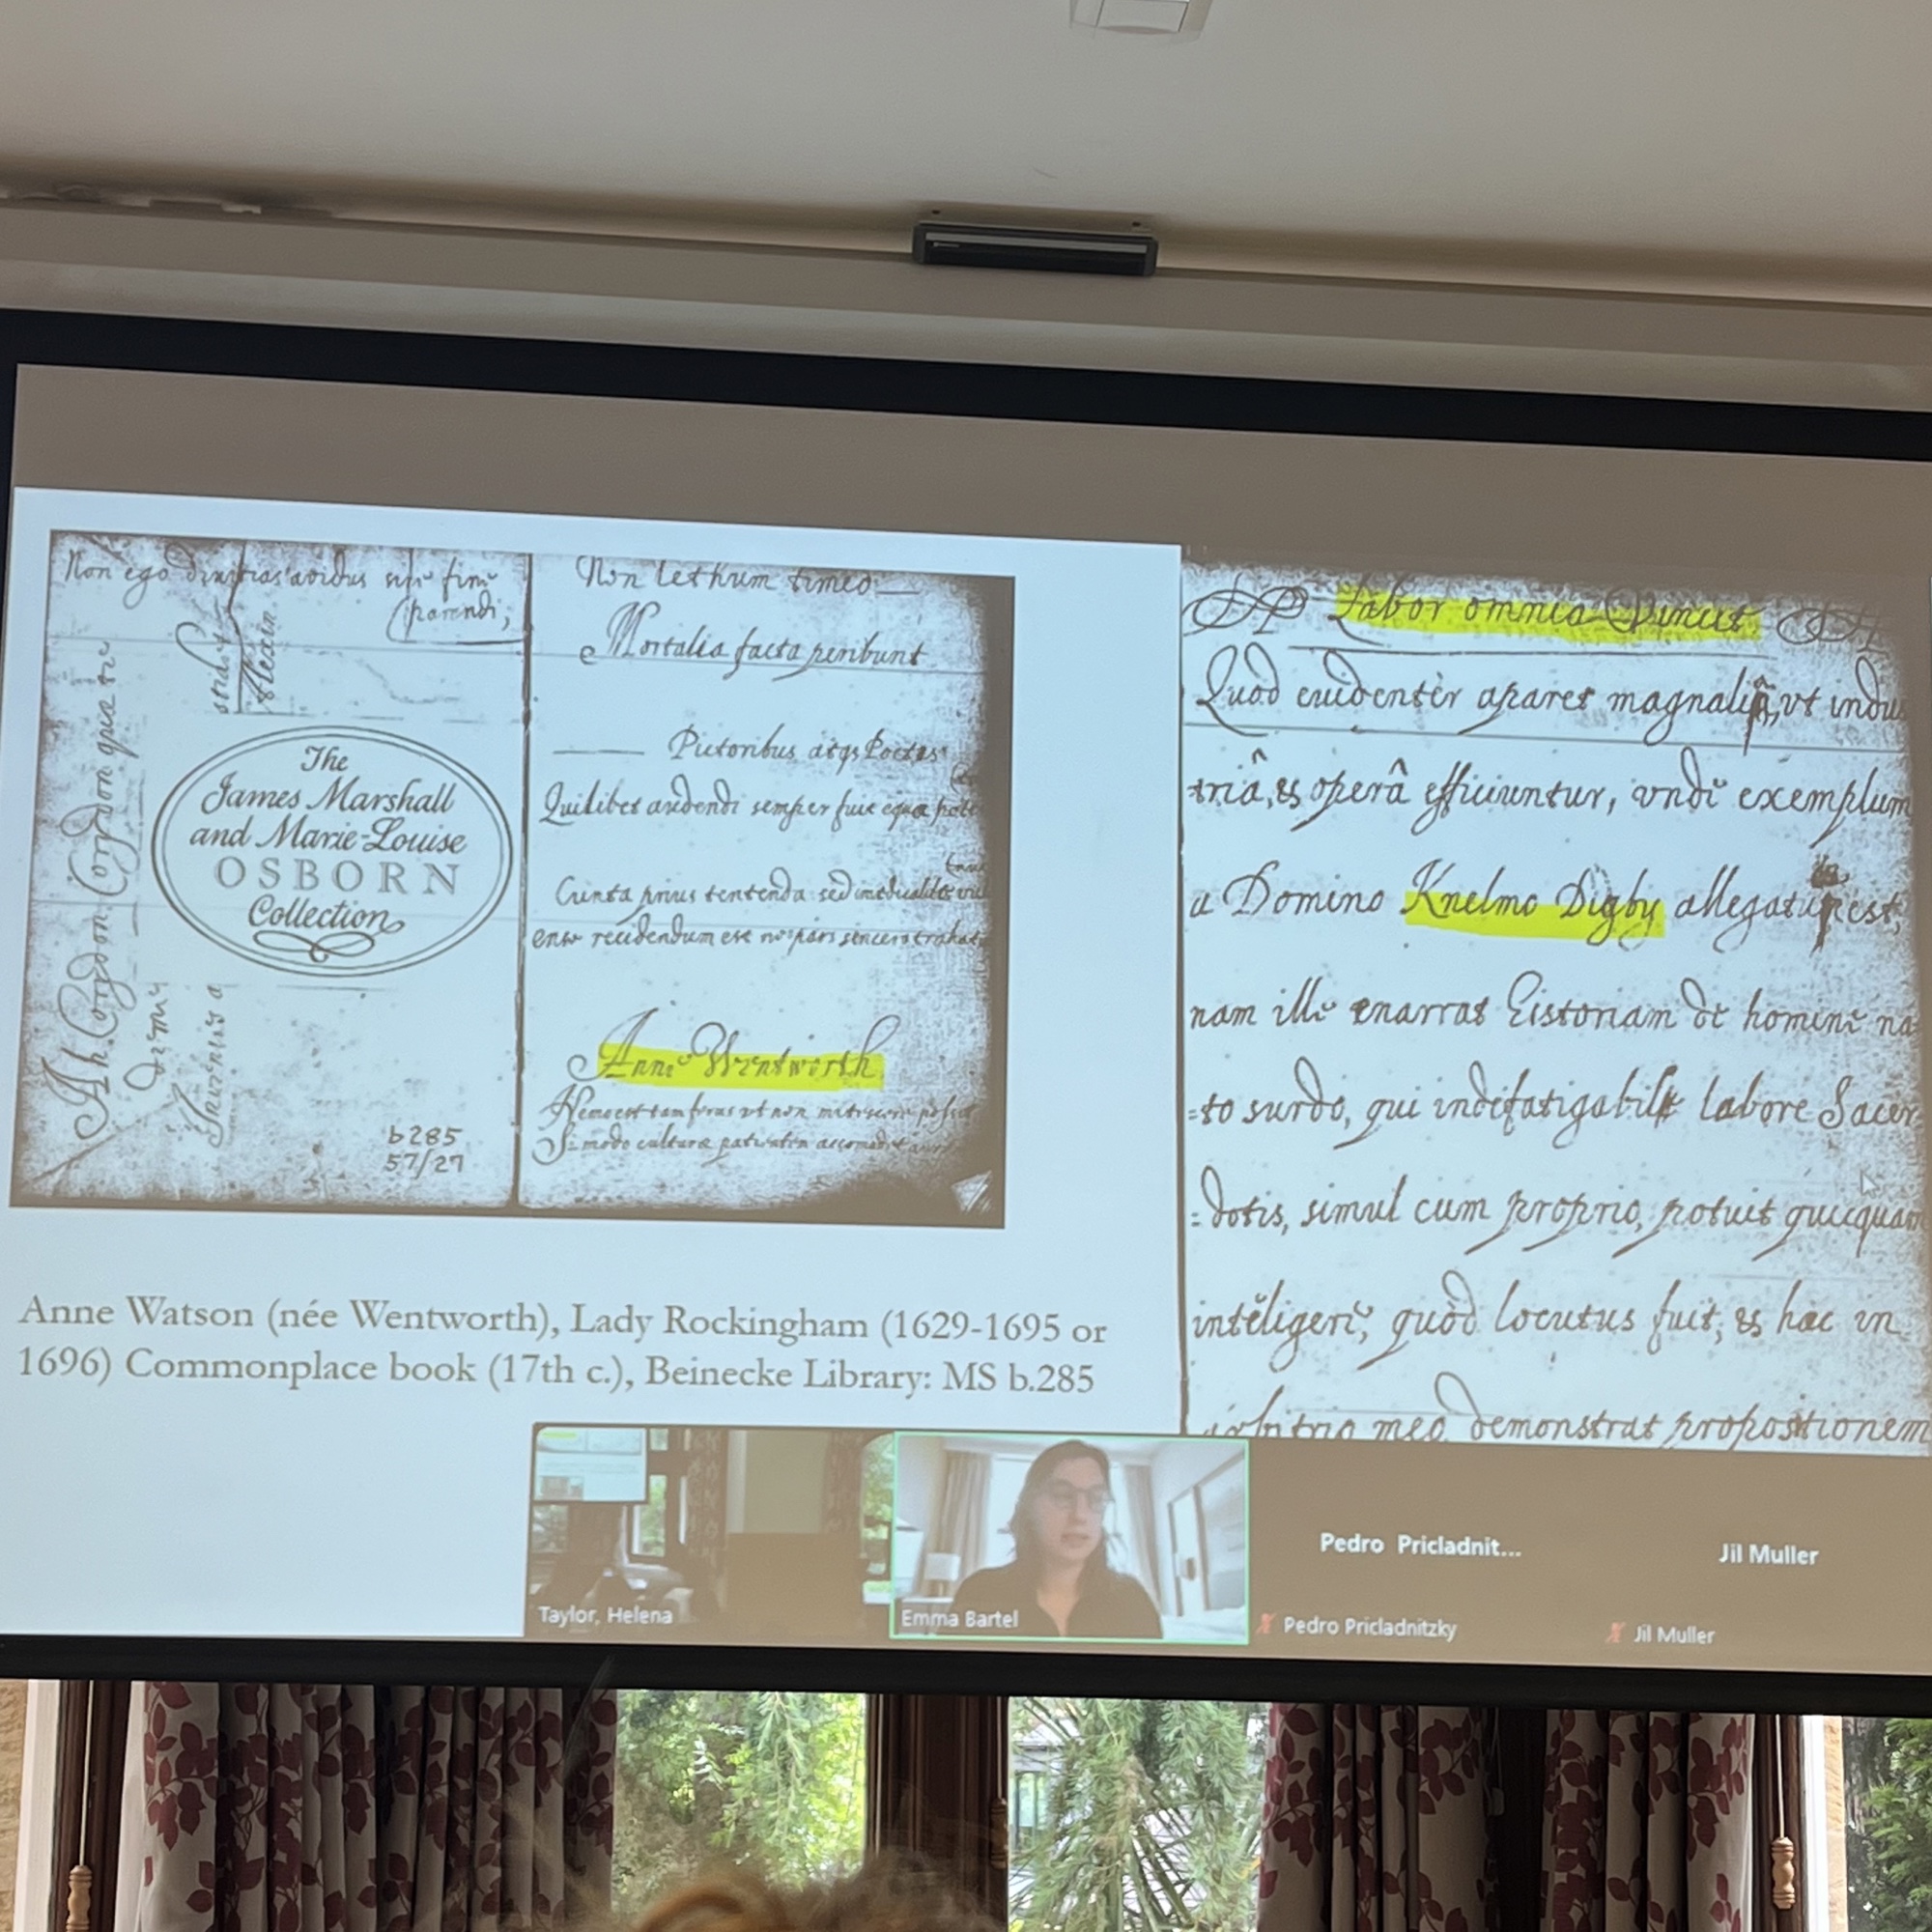 Non ego divitias avidus sine fine
(parandi,
Alcain
Ah Corydon Corydon quæ te
The
James Marshall
and Marie-Louise
OSBORN
Collection
b285
57/27
Non lethum timeo
Mortalia facta peribunt
Pictoribus atqs Poetas
Quilibet audendi semper fuit equa
Cuncta prius tentenda sed
ense recidendum est ne pars sincera trahat
Anne Wentworth
Nemo est tam ferus ut non mitiscere
Si modo culturæ patientem
Labor omnia Vincit
Quod evidentèr aparet magnalia, vt indu
triâ, & operâ efficiuntur, vnde exemplum
a Domino Knelmo Digby allegatu est,
nam ille enarrat Eistoriam de homine na
=to surdo, qui indefatigabile labore Sacer
=dotis, simul cum proprio, potuit quicquam
inteligere, quòd locutus fuit, & hac in
arbitrio meo demonstrat propositionem
Anne Watson (née Wentworth), Lady Rockingham (1629-1695 or
1696) Commonplace book (17th c.), Beinecke Library: MS b.285
Taylor, Helena
Emma Bartel
Pedro Pricladnit...
Pedro Pricladnitzky
Jil Muller
Jil Muller